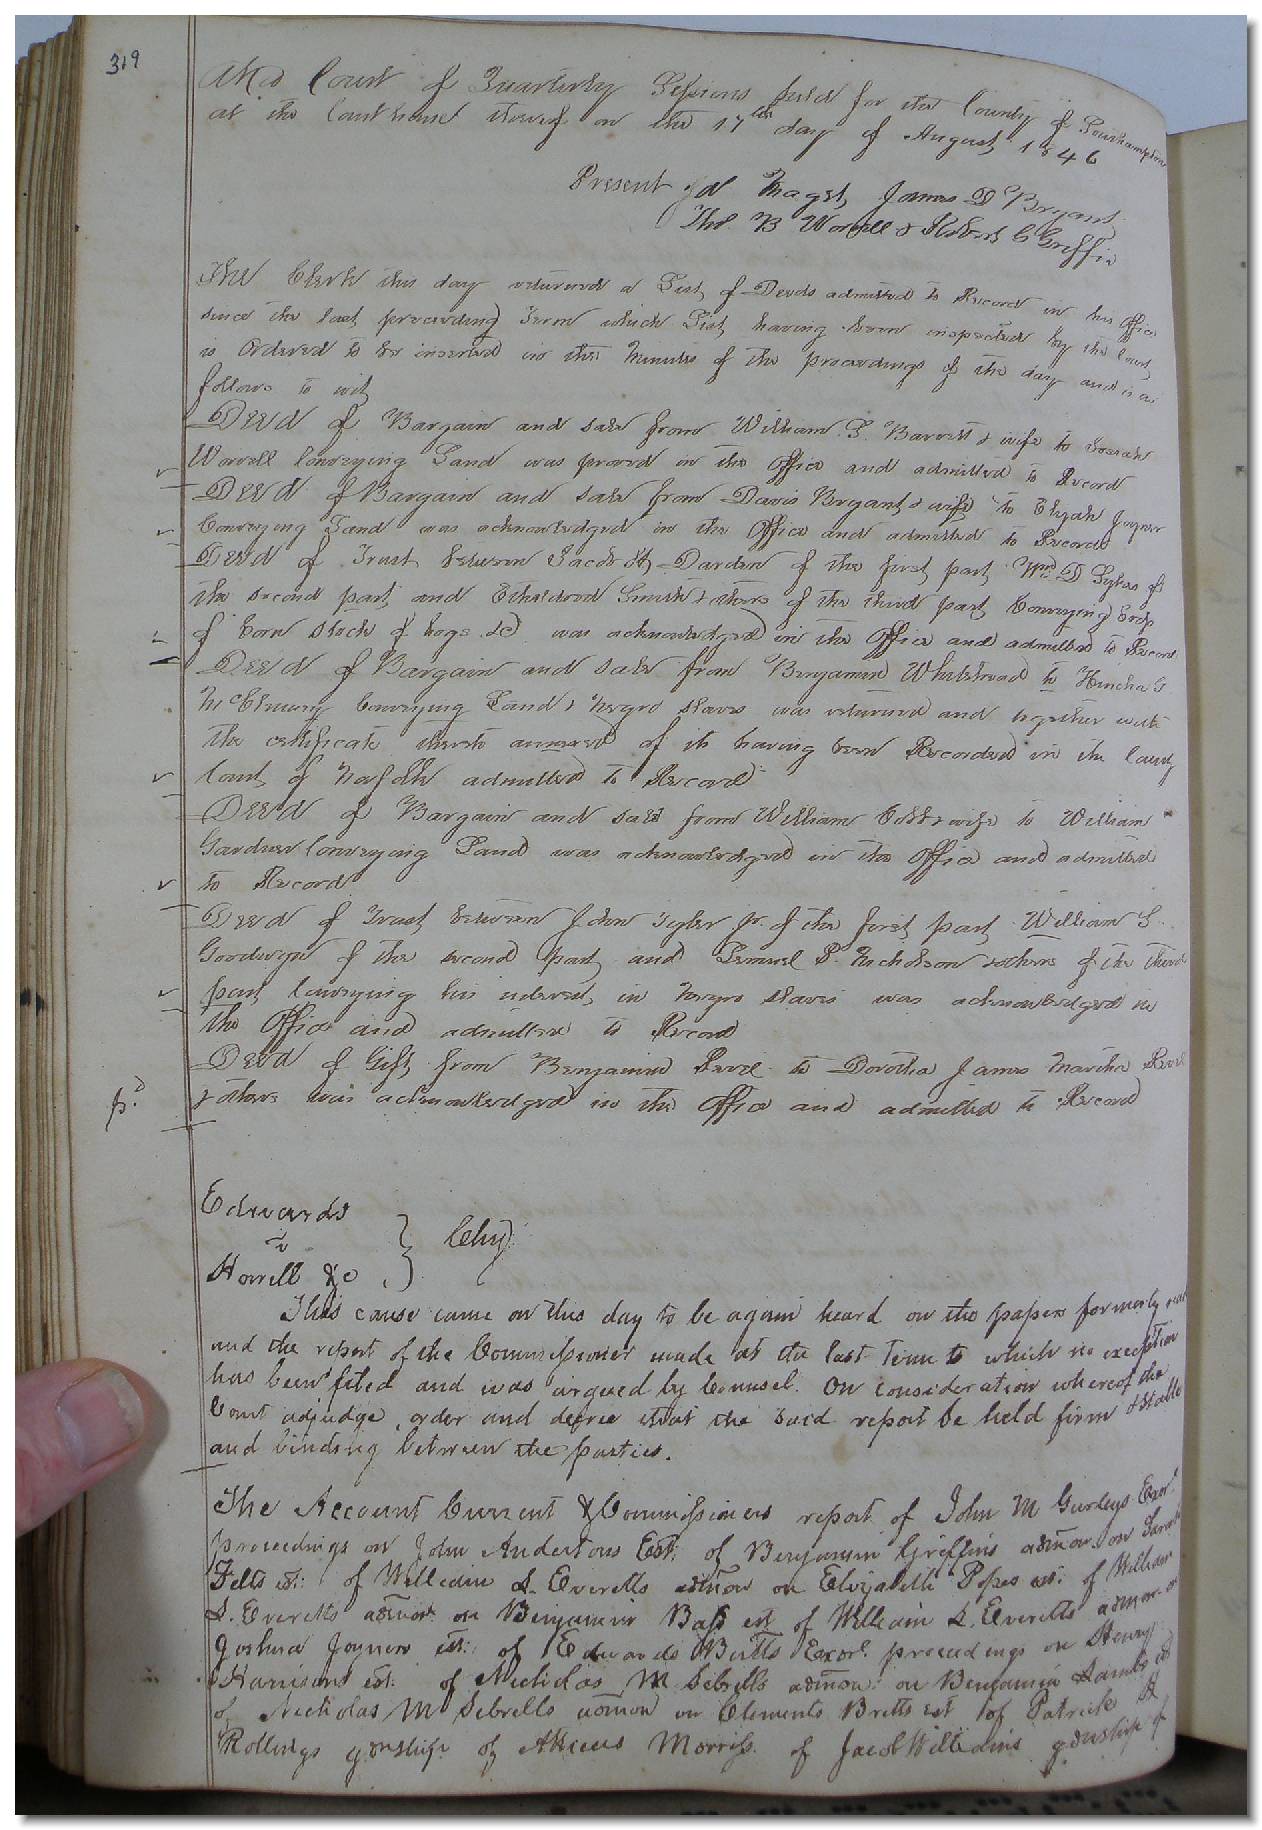 319
At a Court of Quarterly Sessions held for the County of Southampton
at the Courthouse thereof on the 17th day of August 1846
Present Magst, James D Bryant,
Tho. B Worrell & Robert C Griffin
The Clerk this day returned a List of Deeds admitted to Record in his Office
since the last preceeding Term which List, having been inspected by the Court,
is Ordered to be inserted in the Minutes of the proceedings of the day and is as
follows to wit,
Deed of Bargain and sale from William S. Barrett & wife to Josiah
Worrell Conveying Land was proved in the Office and admitted to Record
Deed of Bargain and sale from Davis Bryant & wife to Elijah Joyner
Conveying Land was acknowledged in the Office and admitted to Record
Deed of Trust between Jacob H. Darden of the first part Wm. D Sykes of
the second part and Etheldred Smith & others of the third part, Conveying Crop
of Corn Stock of hogs &c was acknowledged in the Office and admitted to Record
Deed of Bargain and sale from Benjamin Whitehead to Hincha G
McClenny Conveying Land & Negro slaves was returned and together with
the certificate thereto annexed of its having been Recorded in the County
Court of Norfolk admitted to Record
Deed of Bargain and sale from William Cobb & wife to William
Gardner Conveying Land was acknowledged in the Office and admitted
to Record
Deed of Trust between John Tyler Jr. of the first part William G.
Goodwyn of the second part, and Lemuel P. Nicholson & others of the third
part Conveying his interest, in Negro slaves was acknowledged in
the Office and admitted to Record
Deed of Gift from Benjamin Revel to Dorotha James Martha Revel
p.d & others was acknowledged in the Office and admitted to Record
Edwards
v } Chy
Howell &c
This cause came on this day to be again heard on the papers formerly read
and the report of the Commissioner made at the last Term to which no exception
has been filed and was argued by Counsel. On consideration whereof the
Court adjudge, order and decree that the said report be held firm & stable
and binding between the parties.
The Account Current & Commissioners report of John M Gurleys Exor.
proceedings on John Andertons Est: of Benjamin Griffins admon. on Sarah
Felts est: of William L. Everetts admon on Elizabeth Popes est: of William
L. Everetts admon. on Benjamin Bass est of William L. Everetts admon. on
Joshua Joyners est: of Edwards Butts Exor. proceedings on Henry
Harrisons est. of Nicholas M Sebrells admon: on Benjamin Lambs est
of Nicholas M Sebrells admon on Clements Britts est of Patrick H
Rollings gdnship of Morriss. of Jacob Williams gdnship of